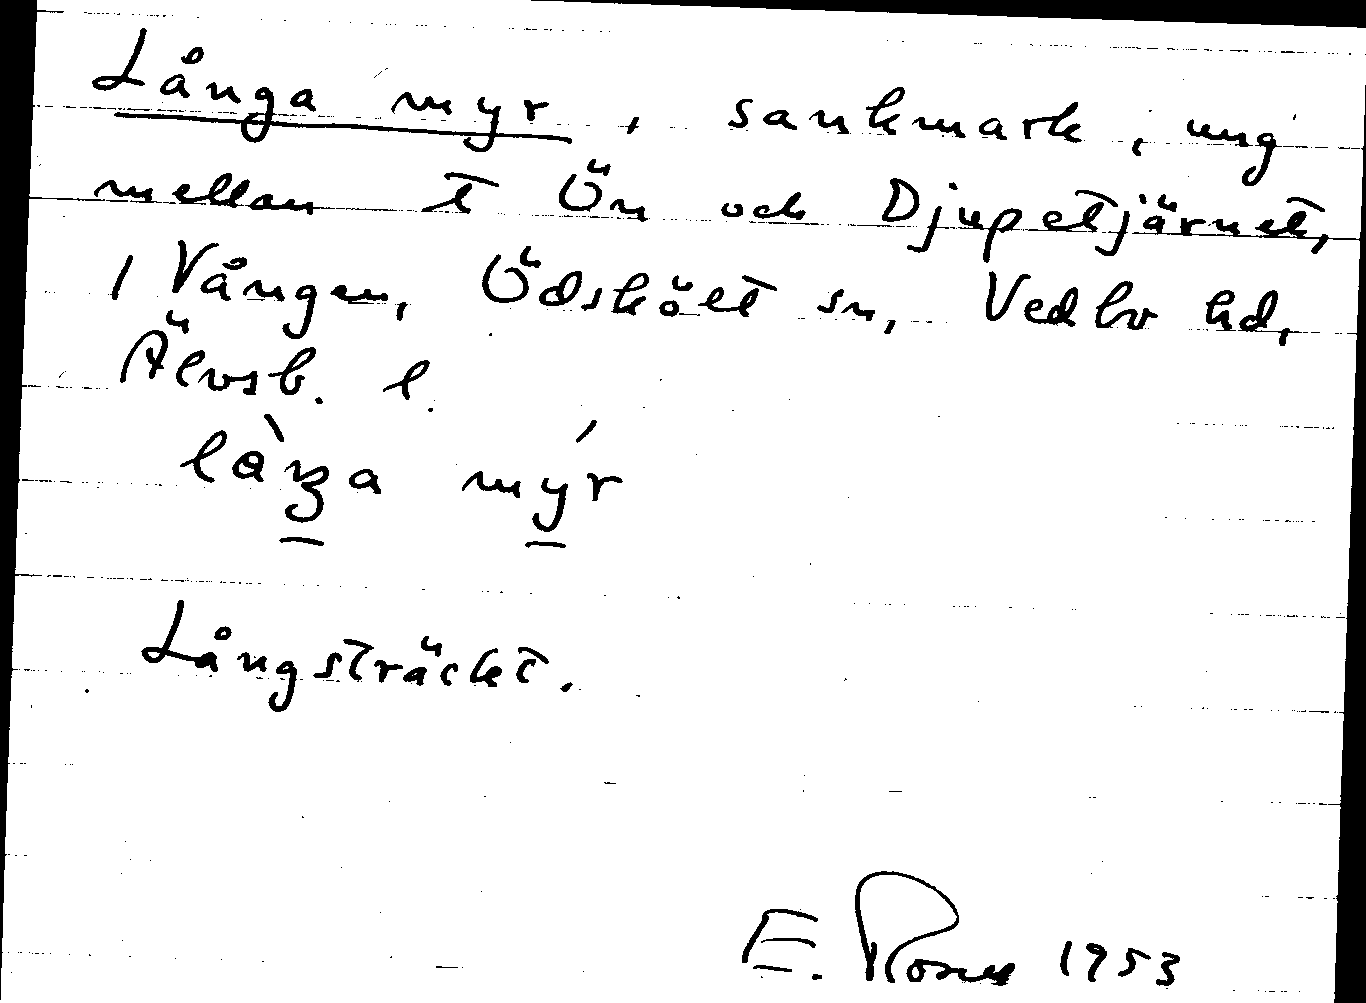 Långa myr, sankmark, ung
mellan t Ön och Djupetjärnet,
/ Vången, Ödskölt sn, Vedbo hd,
Älvsb. l.
myr
Långsträckt.
E. 1953